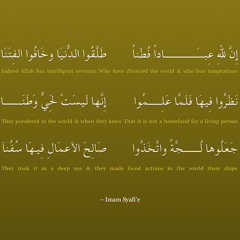 إِنَّ للهِ عِبَـــــاداً فُطنا طَلَّقُوا الدُّنْيَا وَخَافُوا الفِتَنَا
Indeed Allah has intelligent servants Who have divorced the world & who fear temptations
نَظَرُوا فِيهَا فَلَمَّا عَلِمُـــوا إِنَّها لَيسَتْ لَحَيٍّ وَطَنَـــا
They pondered in the world & when they knew That it is not a homeland for a living person
جَعَلُوها لُـــجَّةً وَاتَّخَذُوا صَالِحَ الأَعمَالِ فِيـهَا سُفُنا
They took it as a deep sea & they made Good actions in the world their ships
~ Imam Syafi'e